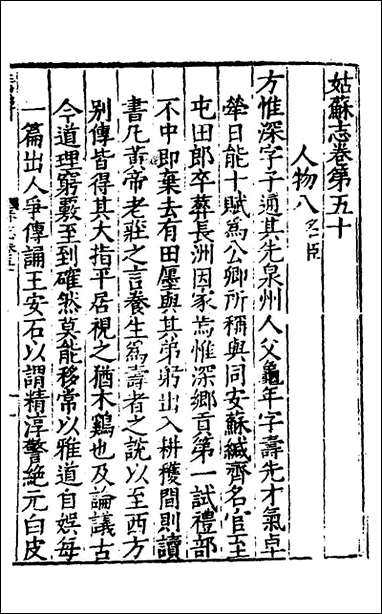 姑蘇志卷第五十
人物八 名臣
方惟深字子通其先泉州人父龜年字壽先才氣卓
犖日能十賦為公卿所稱與同安蘇緘齊名官至
屯田郎卒葬長洲因家焉惟深鄉貢第一試禮部
不中即棄去有田廛與其弟躬出入耕穫間則讀
書凡黃帝老莊之言養生為壽者之說以至西方
別傳皆得其大指平居視之猶木鷄也及論議古
今道理窮覈至到確然莫能移常以雅道自娛每
一篇出人爭傳誦王安石以謂精淳警絕元白皮